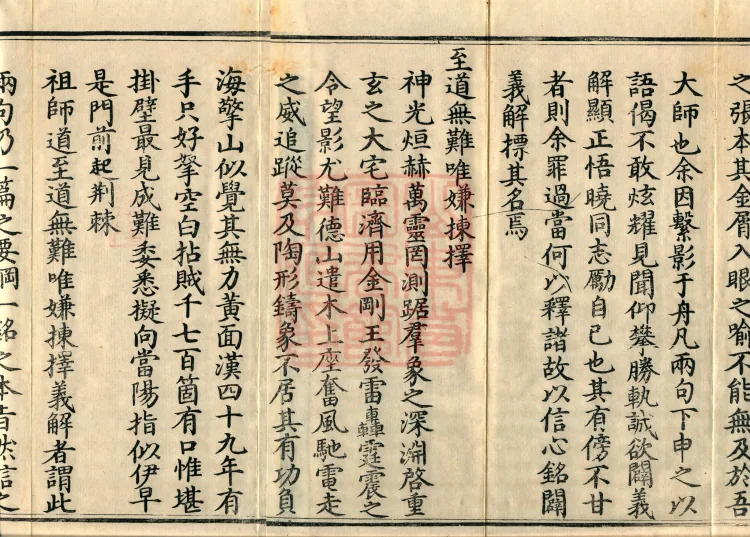 之張本其金屑入眼之喻不能無及於吾
大師也余因繫影于舟凡兩句下申之以
語偈不敢炫耀見聞仰攀勝軌誠欲闢義
解顯正悟曉同志勵自己也其有傍不甘
者則余罪過當何以釋諸故以信心銘闢
義解標其名焉
至道無難唯嫌揀擇
神光烜赫萬靈罔測踞羣象之深淵啓重
玄之大宅臨濟用金剛王發雷轟霆震之
令望影尤難德山遣木上座奮風馳雷走
之威追蹤莫及陶形鑄象不居其有功負
海擎山似覺其無力黃面漢四十九年有
手只好拏空白拈賊千七百箇有口惟堪
掛壁最見成難委悉擬向當陽指似伊早
是門前起荆棘
祖師道至道無難唯嫌揀擇義解者謂此
兩句乃一篇之要綱一銘之本旨然信之